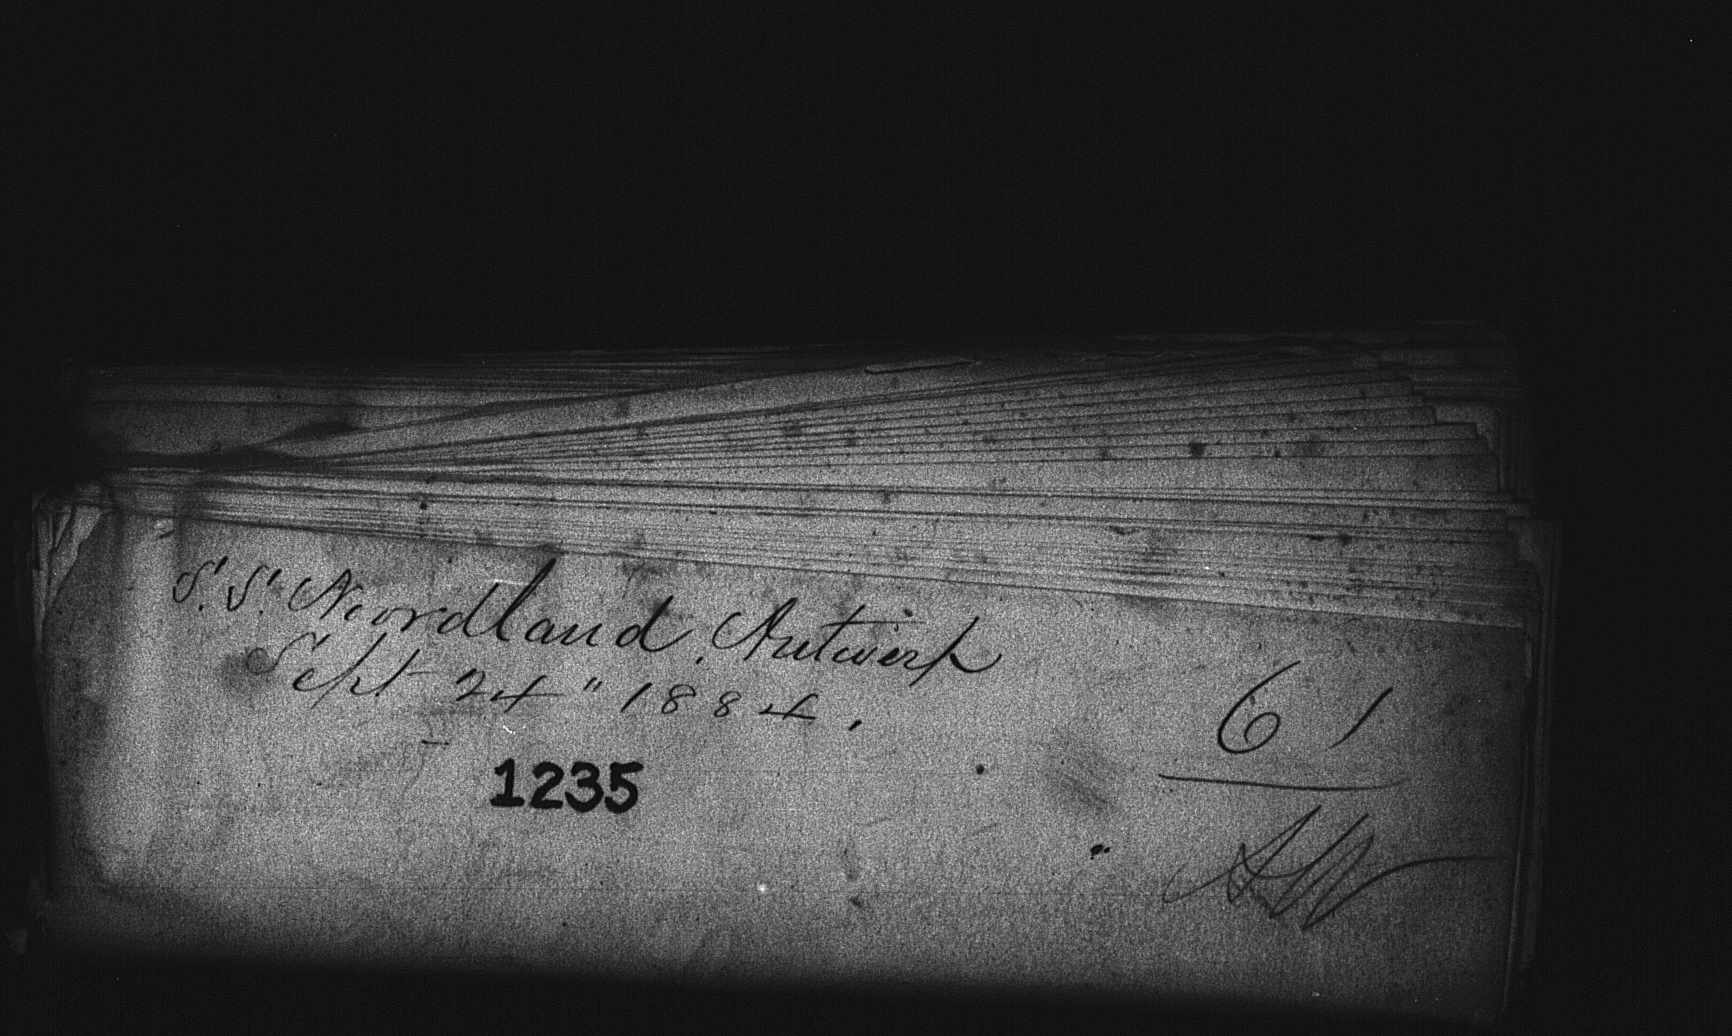 S. S. Noordland, Antwerp
Sept 24" 1884,
61
1235